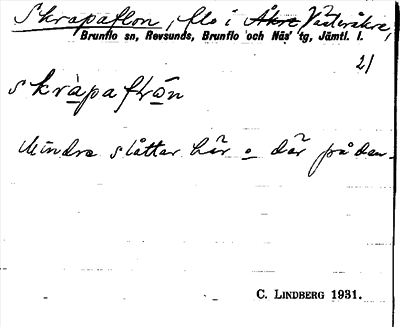 Skrapaflon, flo i Åkre Västeråkre,
Brunflo sn, Revsunds, Brunflo och Näs' tg, Jämtl. l.
2/
skràpaflọ̄n
Mindre slåttar här o. där på den.
C. LINDBERG 1931.